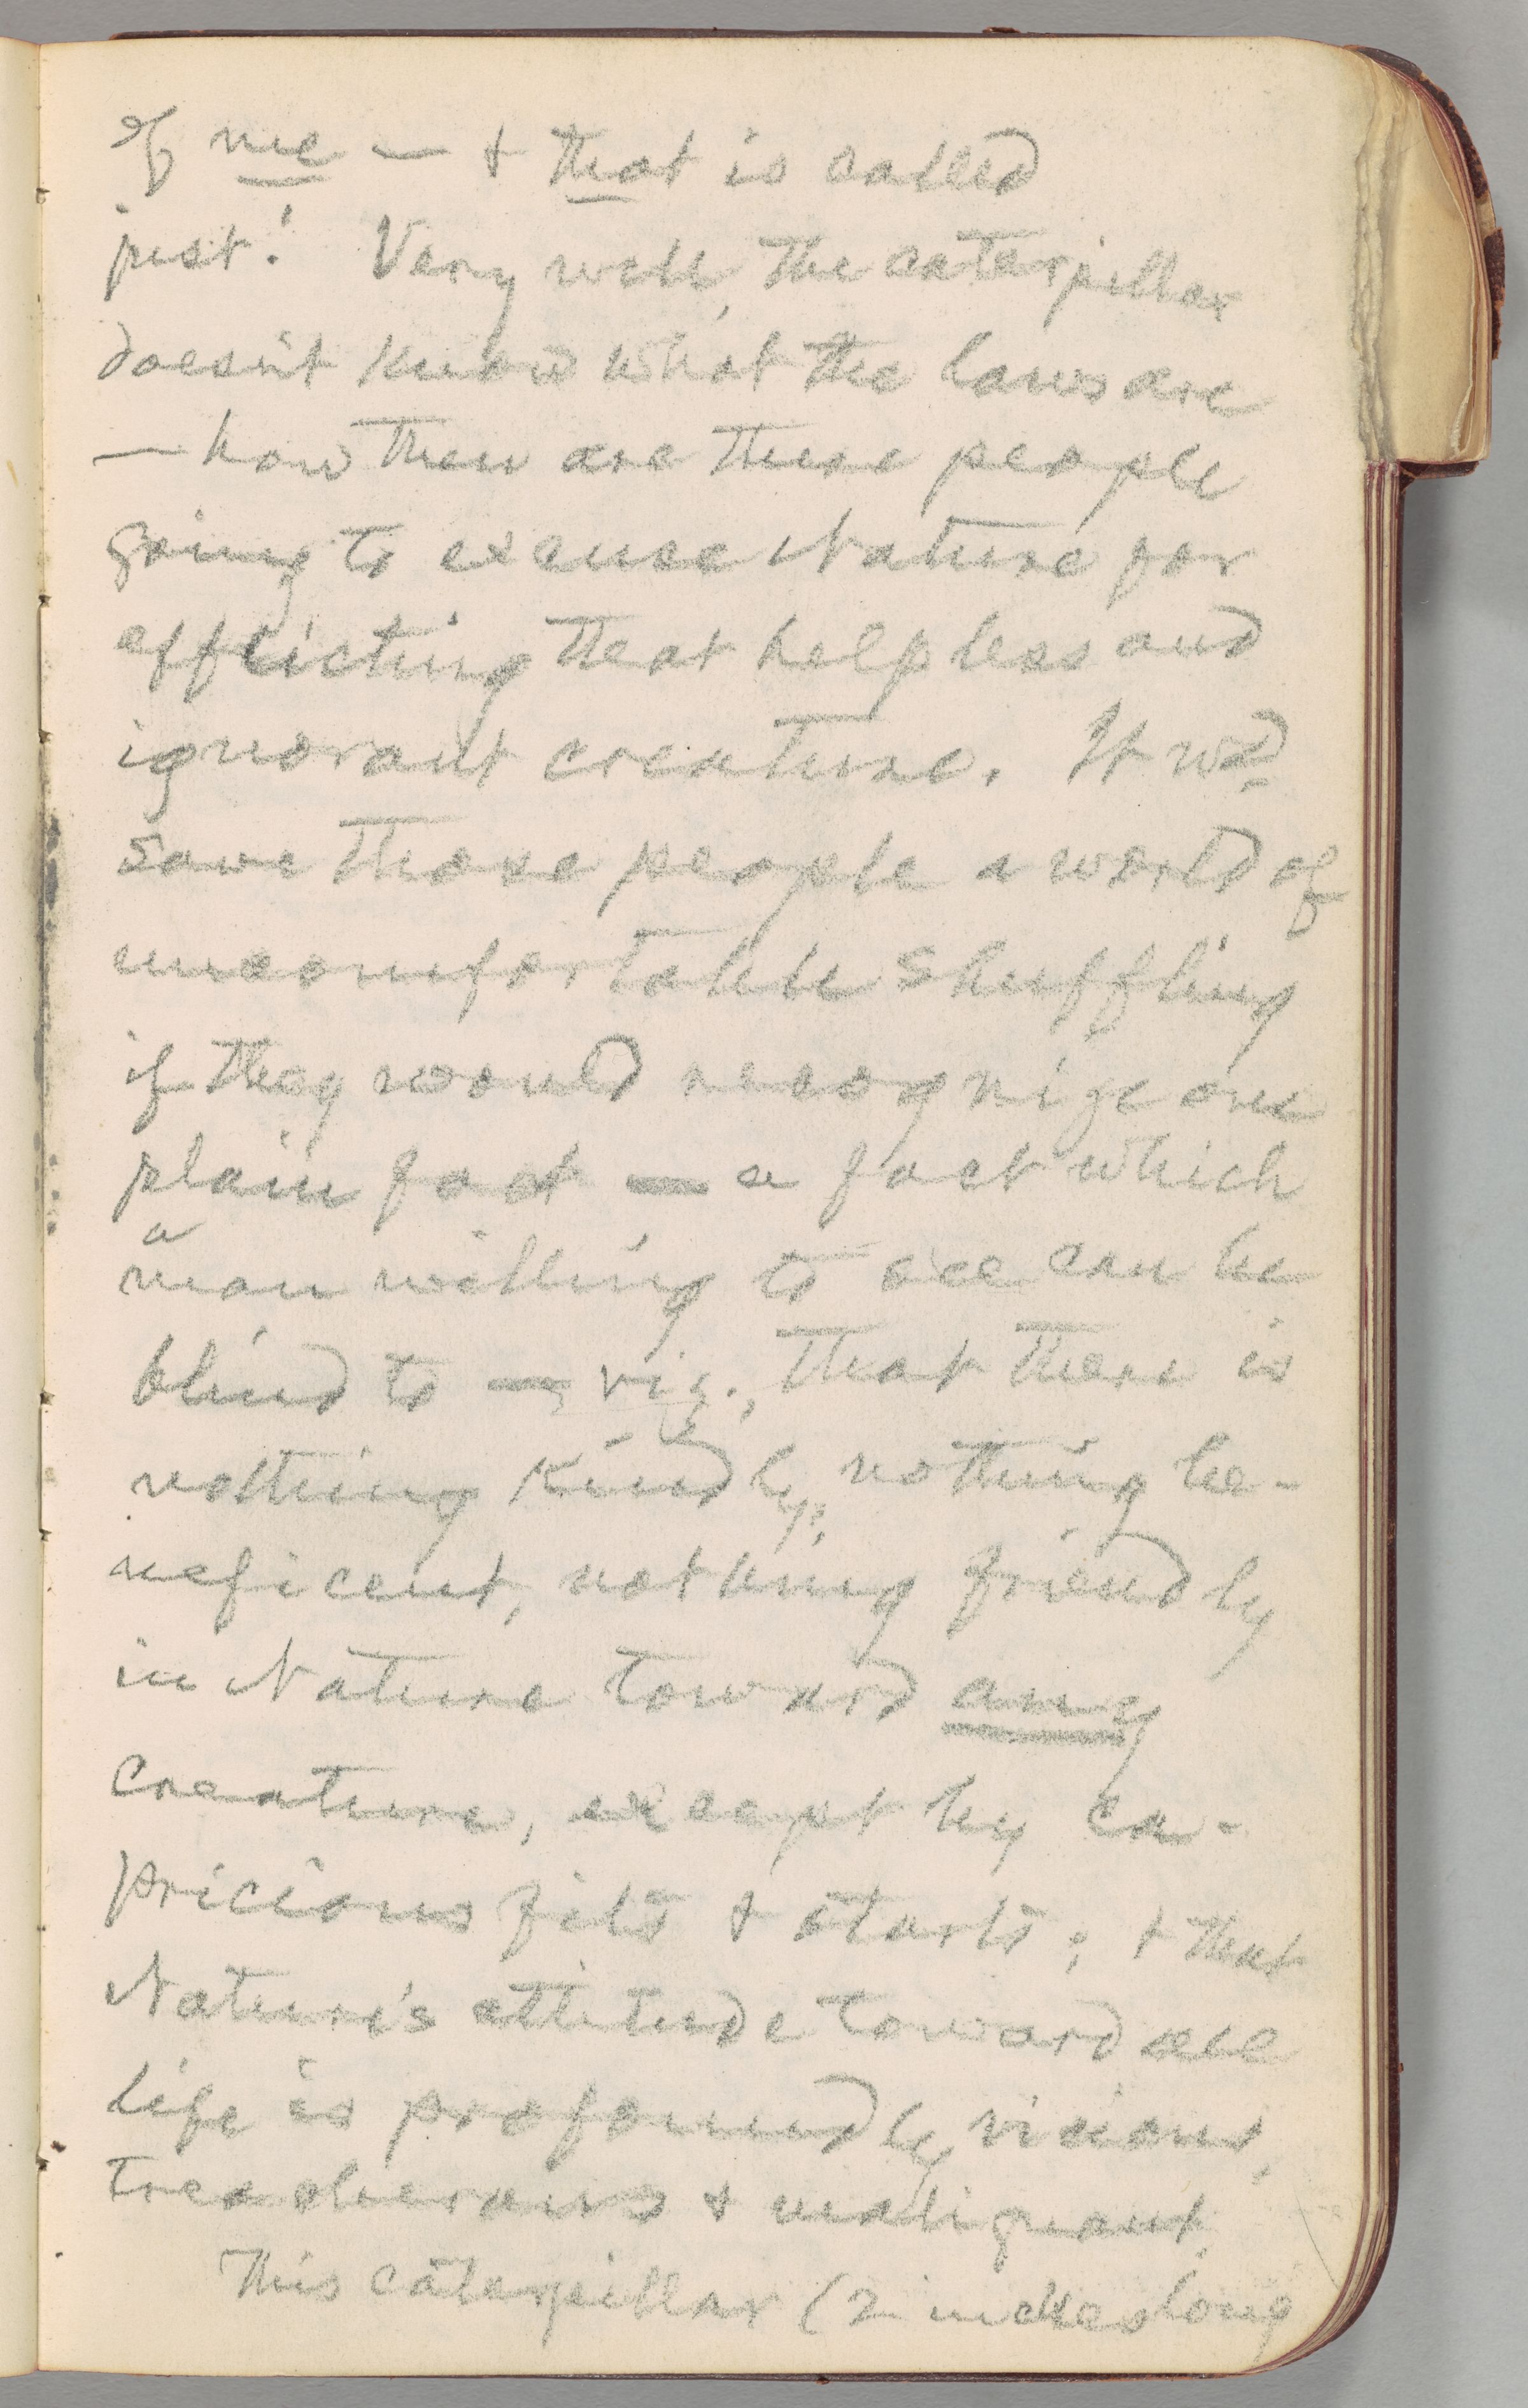 of me — & that is called
just! Very well, the caterpillar
doesn't know what the laws are
— how then are these people
going to excuse Nature for
afflicting that helpless and
ignorant creature. It wd
save those people a world of
uncomfortable shuffling
if they would recognize one
plain fact — a fact which
a
man willing to see can be
blind to — viz., that there is
nothing kindly, nothing be-
neficent, nothing friendly
in Nature toward any
creature, except by ca-
pricious fits & starts; & that
Nature's attitude toward all
life is profoundly vicious,
treacherous & malignant.
This caterpillar (2 inches long